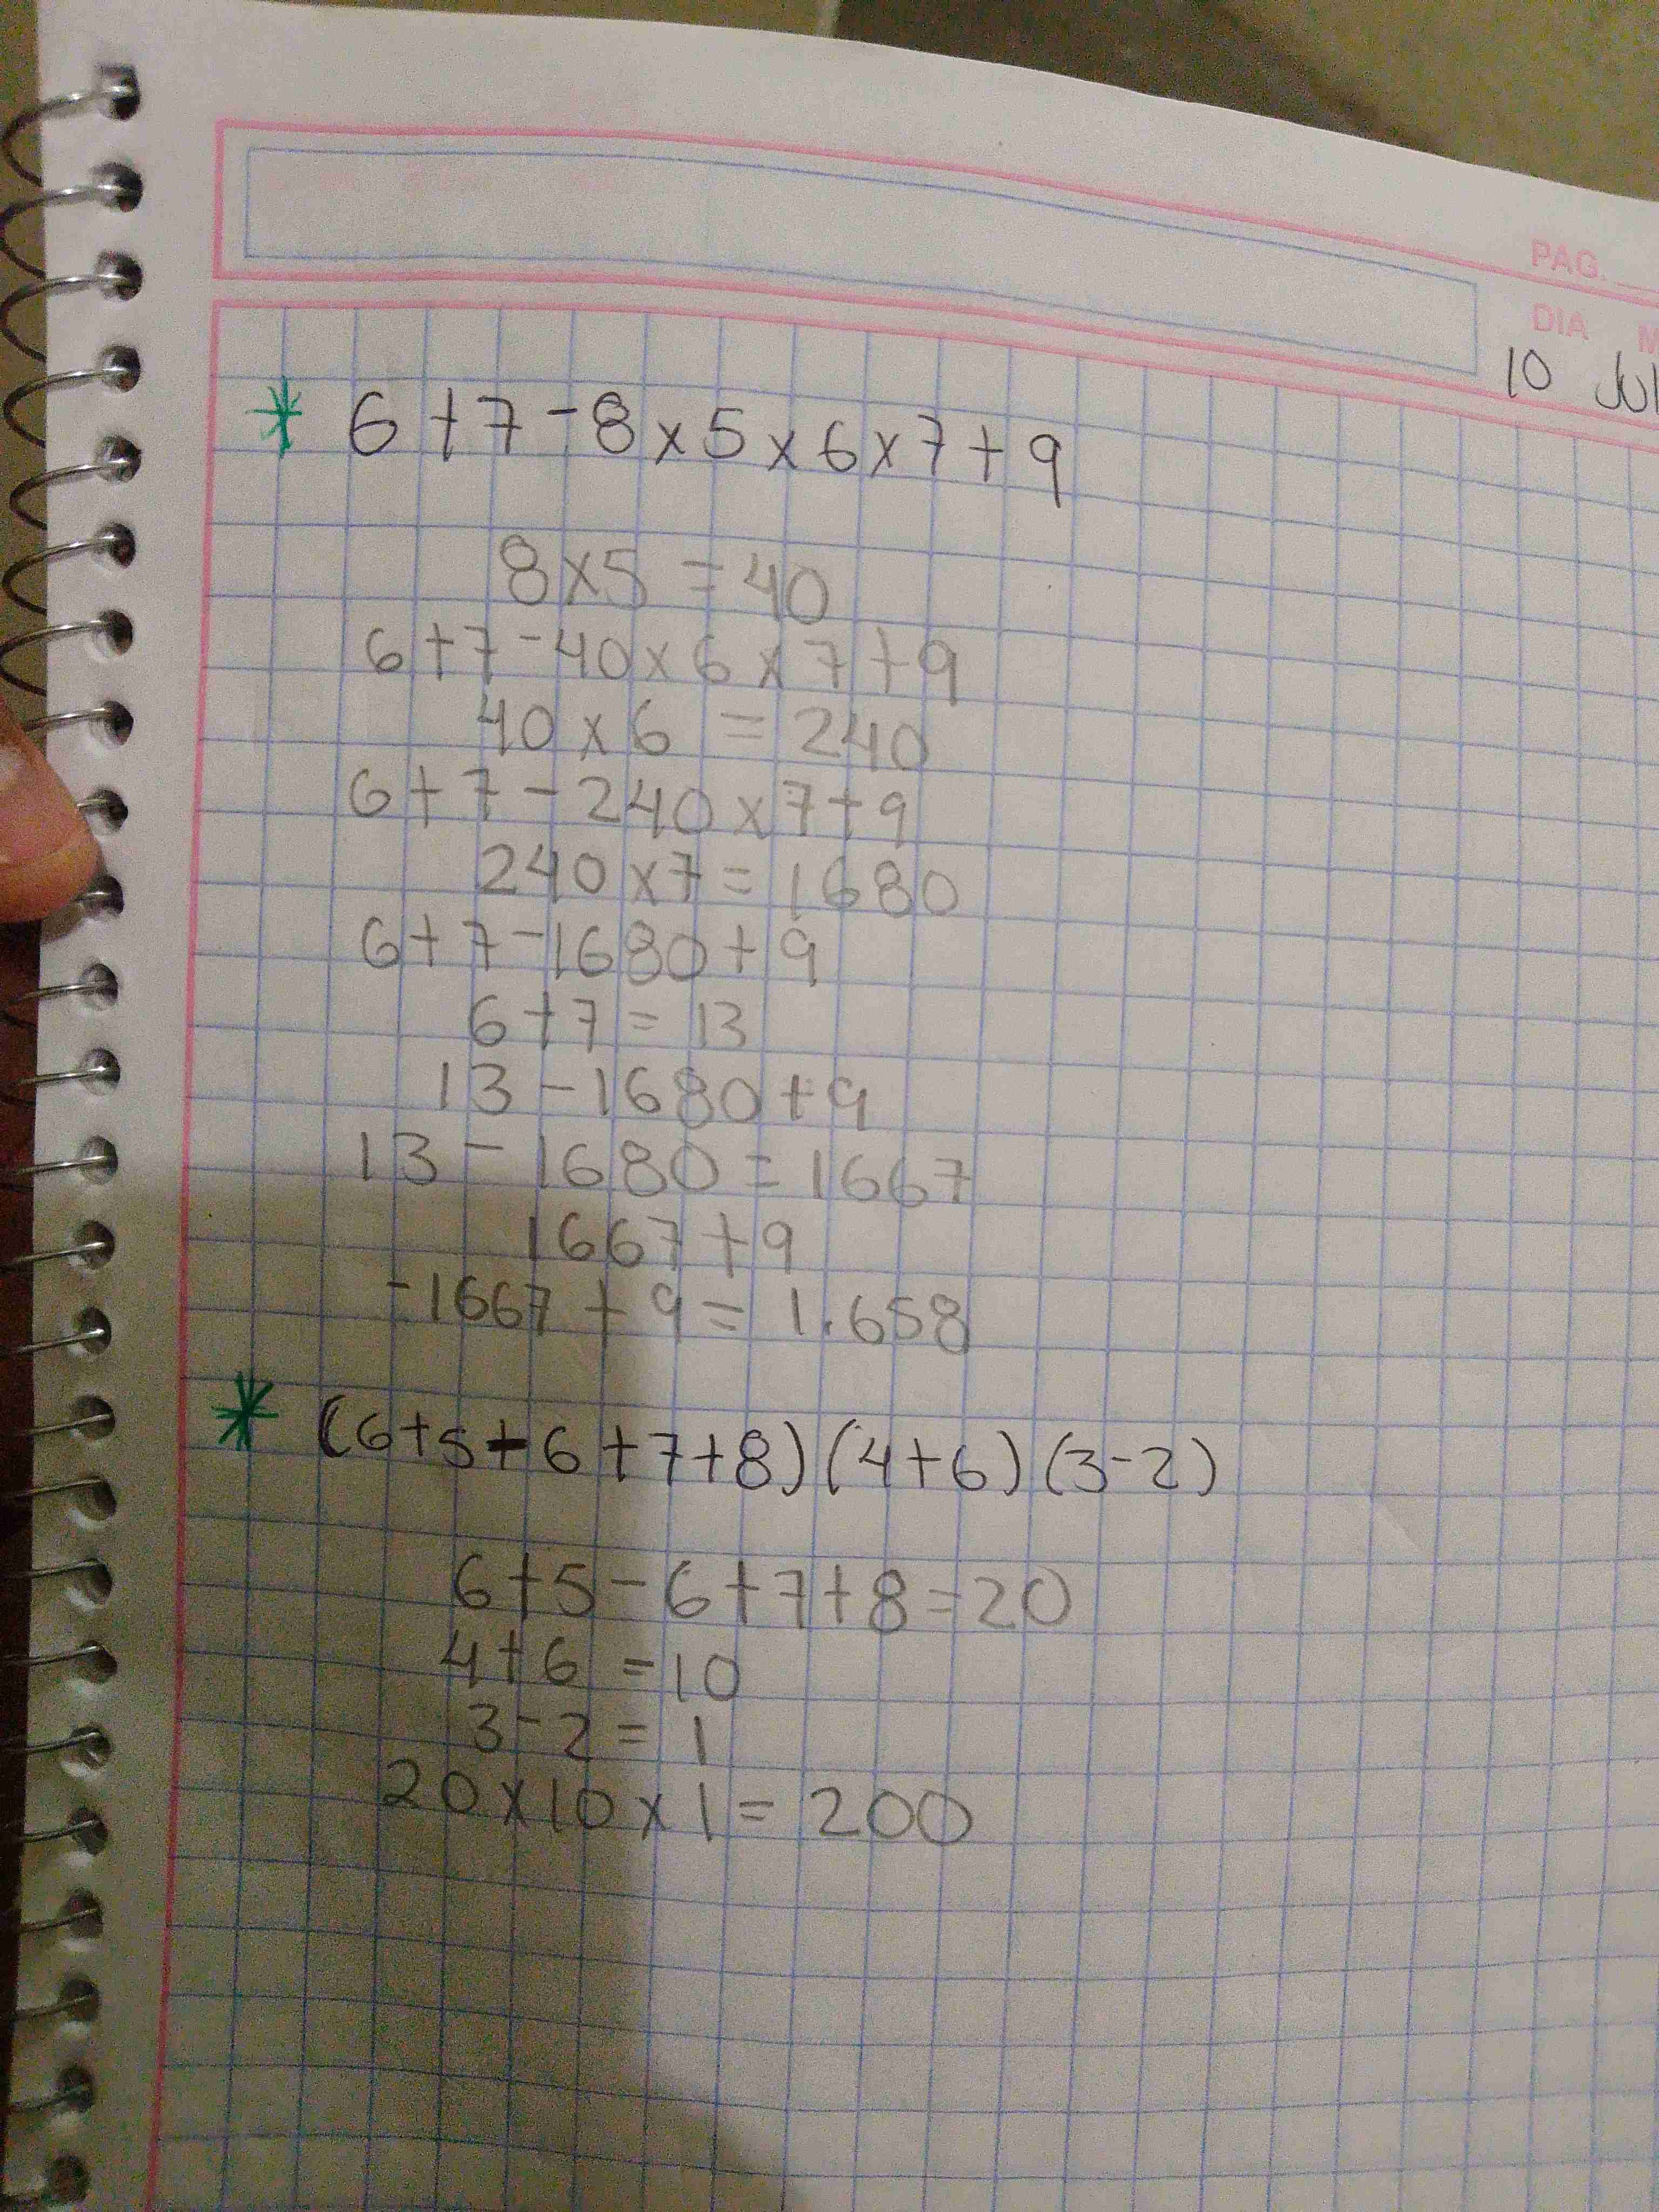 PAG.
DIA M
10 Jul
* 6+7-8x5x6x7+9
8x5=40
6+7-40x6x7+9
40x6=240
6+7-240x7+9
240x7=1680
6+7-1680+9
6+7=13
13-1680+9
13-1680=1667
1667+9
-1667+9=1.658
* (6+5-6+7+8)(4+6)(3-2)
6+5-6+7+8=20
4+6=10
3-2=1
20x10x1=200